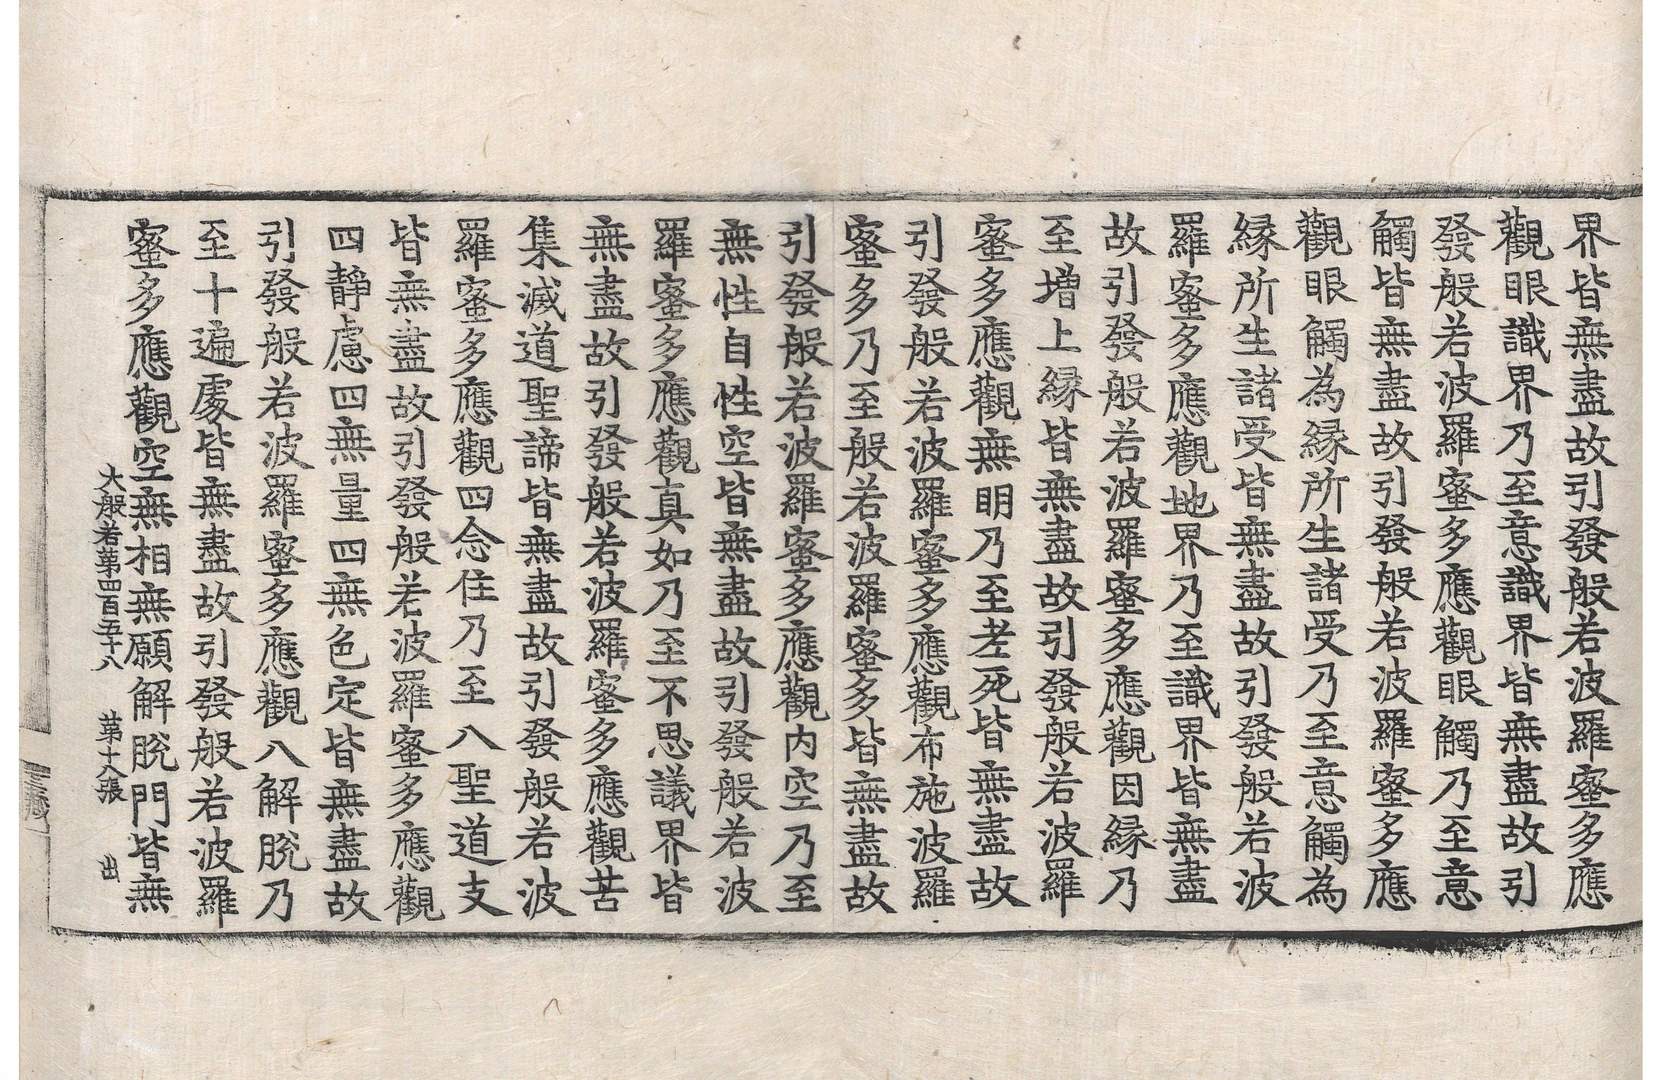 界皆無盡故引發般若波羅蜜多應
觀眼識界乃至意識界皆無盡故引
發般若波羅蜜多應觀眼觸乃至意
觸皆無盡故引發般若波羅蜜多應
觀眼觸為緣所生諸受乃至意觸為
緣所生諸受皆無盡故引發般若波
羅蜜多應觀地界乃至識界皆無盡
故引發般若波羅蜜多應觀因緣乃
至增上緣皆無盡故引發般若波羅
蜜多應觀無明乃至老死皆無盡故
引發般若波羅蜜多應觀布施波羅
蜜多乃至般若波羅蜜多皆無盡故
引發般若波羅蜜多應觀內空乃至
無性自性空皆無盡故引發般若波
羅蜜多應觀真如乃至不思議界皆
無盡故引發般若波羅蜜多應觀苦
集滅道聖諦皆無盡故引發般若波
羅蜜多應觀四念住乃至八聖道支
皆無盡故引發般若波羅蜜多應觀
四靜慮四無量四無色定皆無盡故
引發般若波羅蜜多應觀八解脫乃
至十遍處皆無盡故引發般若波羅
蜜多應觀空無相無願解脫門皆無
大般若第四百五十八 第十八張 出